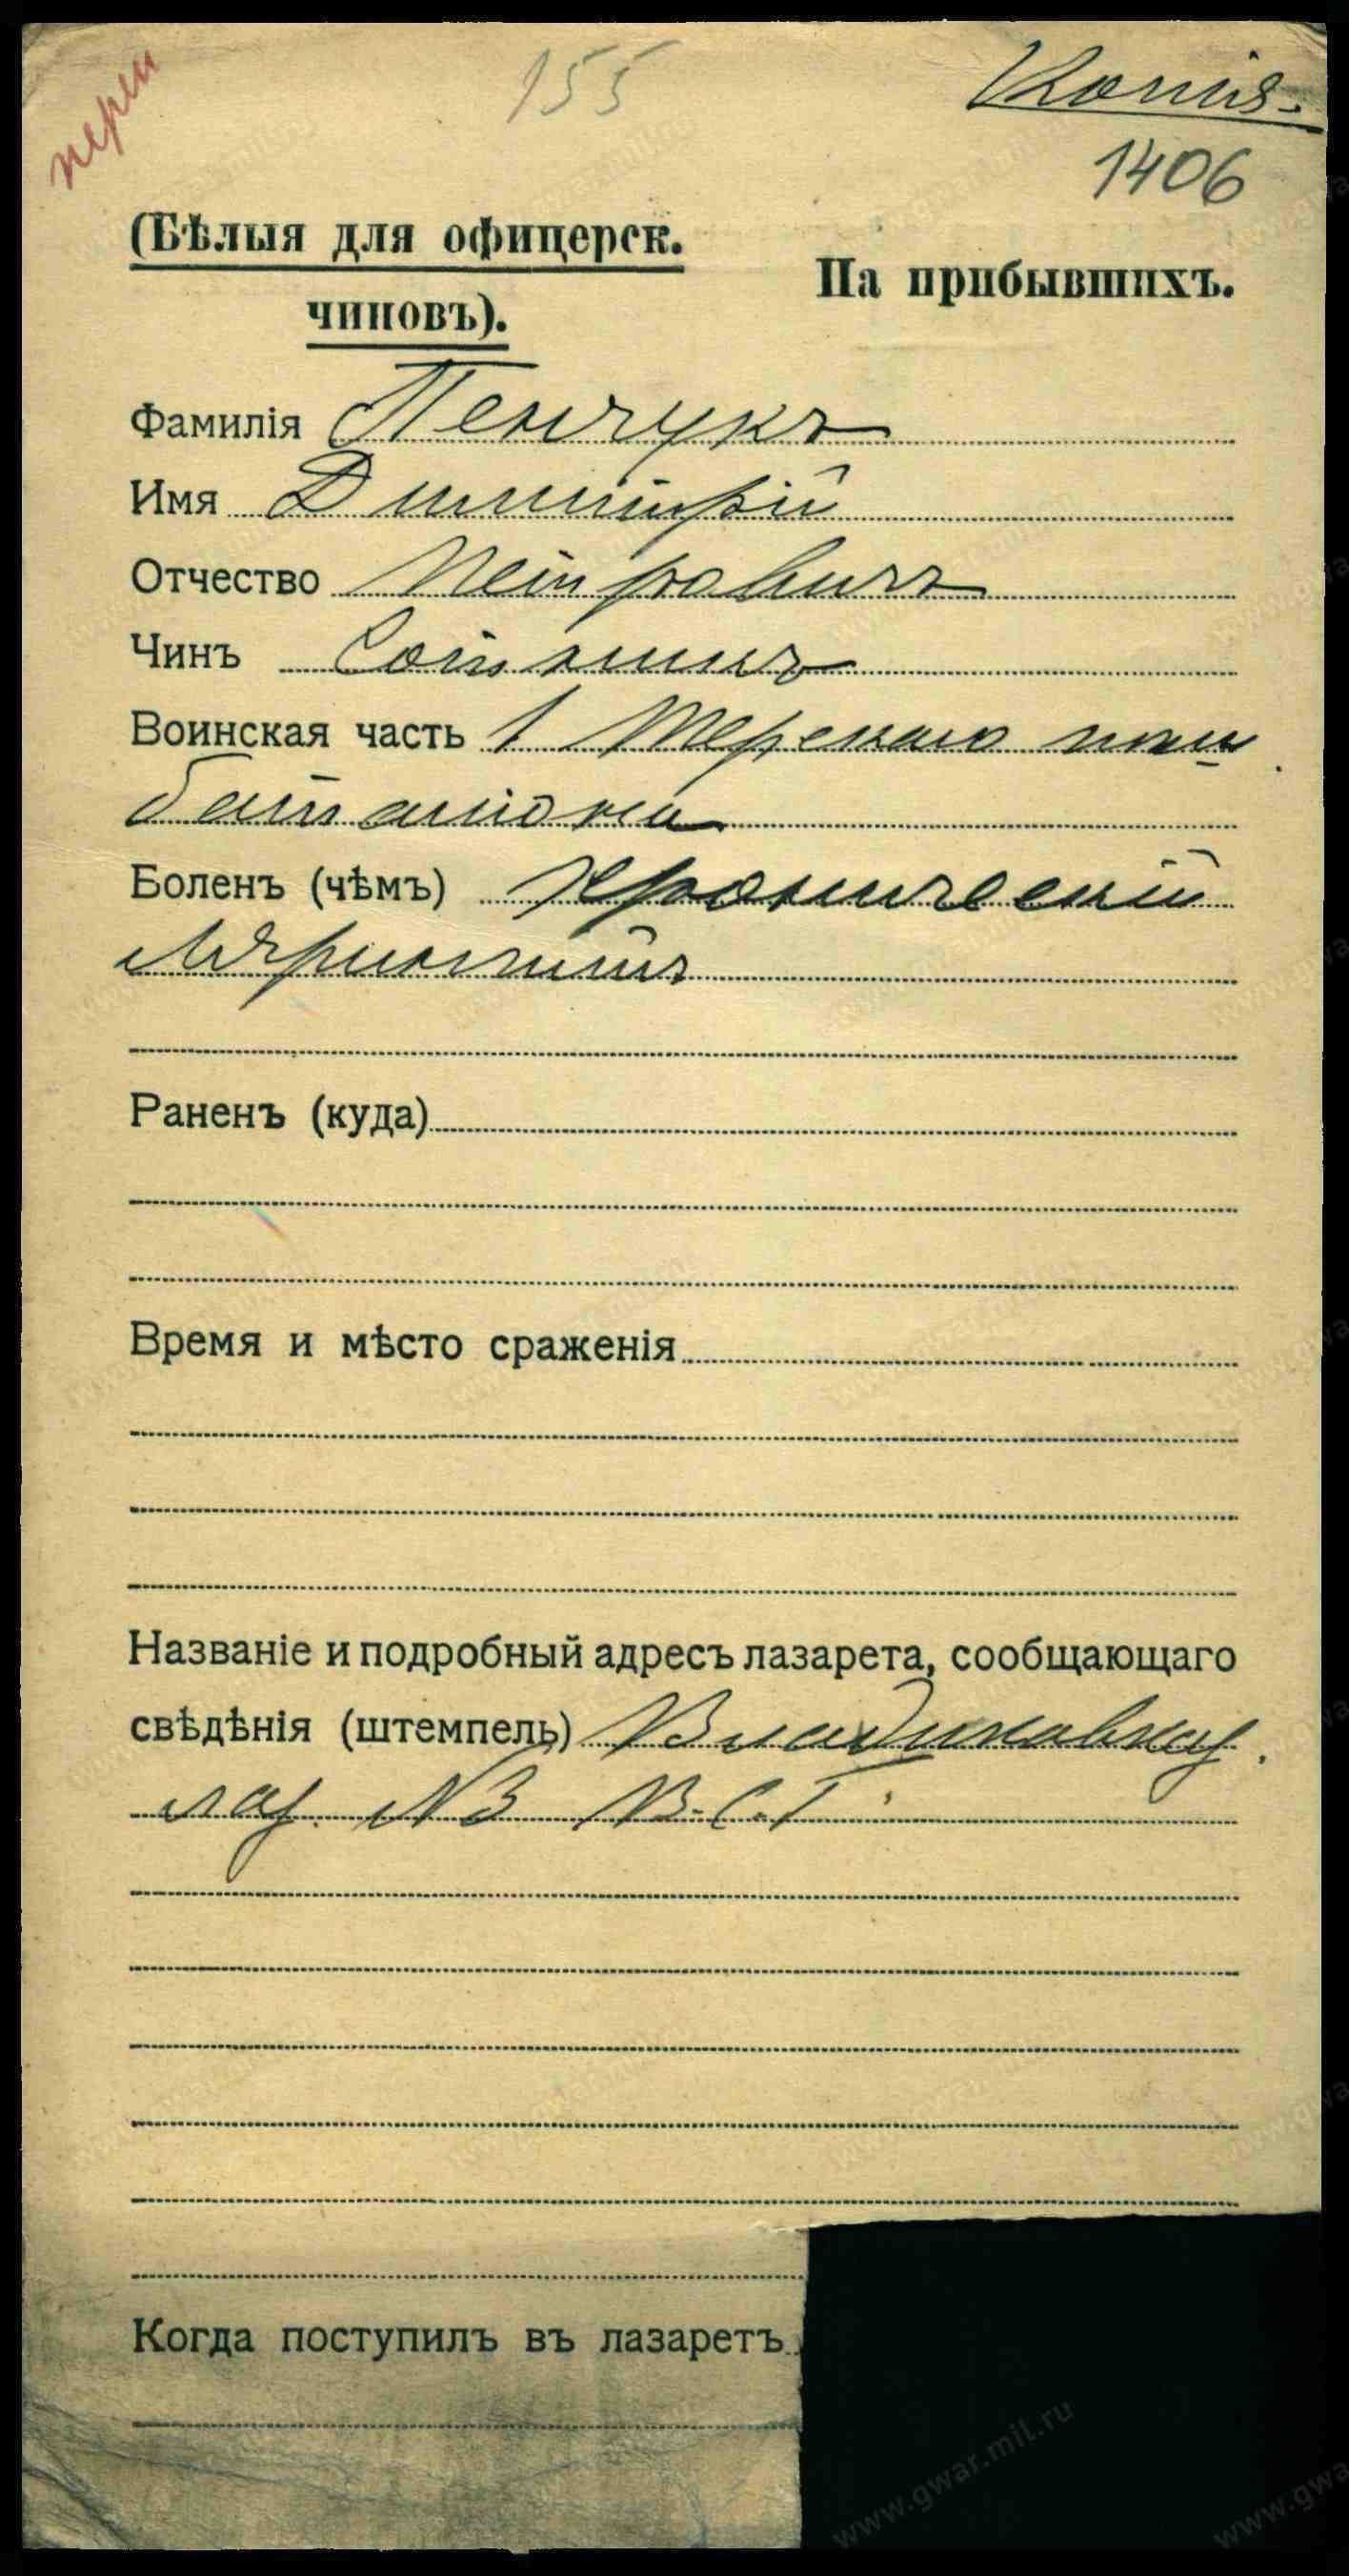 перем
155
Копія.
1406
(Бѣлыя для офицерск.
чиновъ).
На прибывшихъ.
Фамилія Пенчукъ
Имя Димитрій
Отчество Петровичъ
Чинъ Сотникъ
Воинская часть 1 Терскаго плас
баталіона
Боленъ (чѣмъ) хроническій
Раненъ (куда)
Время и мѣсто сраженія
Названіе и подробный адресъ лазарета, сообщающаго
свѣдѣнія (штемпель) Владикавказ.
лаз. №3 В.С.Г.
Когда поступилъ въ лазаретъ
www.gwar.mil.ru